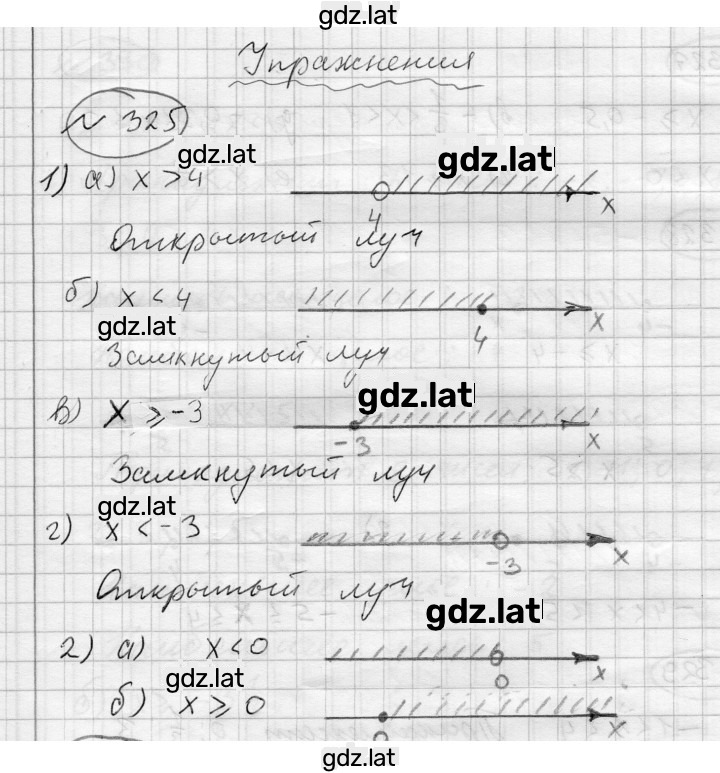 gdz.lat
Упражнения
№ 325
gdz.lat
gdz.lat
1) а) x > 4
4
x
Открытый луч
б) x < 4
4
x
gdz.lat
Замкнутый луч
gdz.lat
в) x ⩾ -3
-3
x
Замкнутый луч
gdz.lat
г) x < -3
-3
x
Открытый луч
gdz.lat
2) а) x < 0
0
x
gdz.lat
б) x ⩾ 0
0
x
gdz.lat